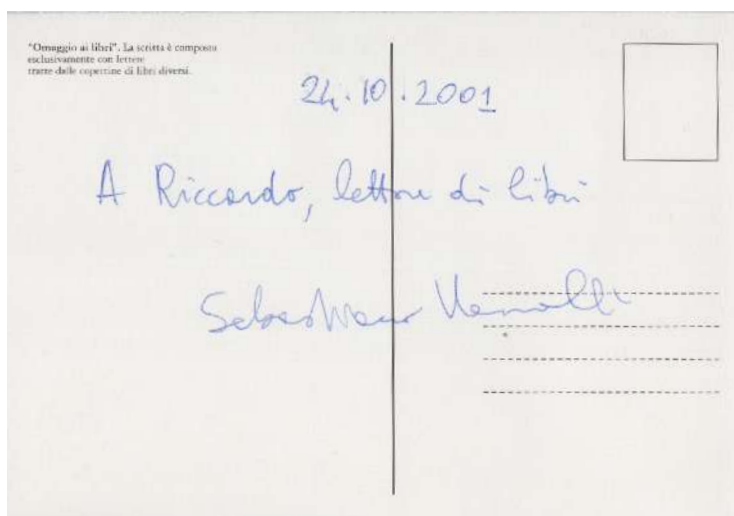 "Omaggio ai libri". La scritta è composta
esclusivamente con lettere
tratte dalle copertine di libri diversi.
24.10.2001
A Riccardo, lettore di libri
Sebastiano